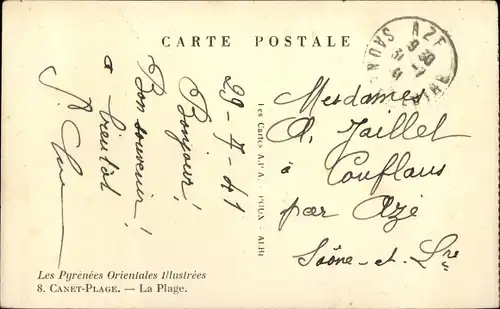 CARTE POSTALE
AZE
9 30
31 -7
41
29-7-41
Bonjour!
Bon souvenir!
à bientôt
Les Cartes A.P.A. - POUX - ALBI
Mesdames
A. Jaillet
à Conflans
par Azé
Saône-et-Lre
Les Pyrénées Orientales Illustrées
8. CANET-PLAGE. — La Plage.